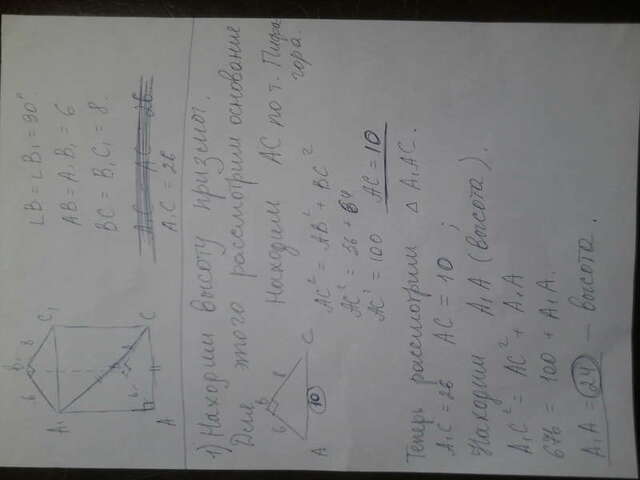 A₁
B₁
C₁
6
8
A
B
C
6
8
∠B = ∠B₁ = 90°.
AB = A₁B₁ = 6
BC = B₁C₁ = 8.
A₁C = 26
1) Находим высоту призмы.
Для этого рассмотрим основание
Находим AC по т. Пифа
гора.
A
B
C
6
8
10
AC² = AB² + BC²
AC² = 36 + 64
AC² = 100 AC = 10
Теперь рассмотрим △ A₁AC.
A₁C = 26 AC = 10;
Находим A₁A (высота).
A₁C² = AC² + A₁A
676 = 100 + A₁A.
A₁A = 24 – высота.